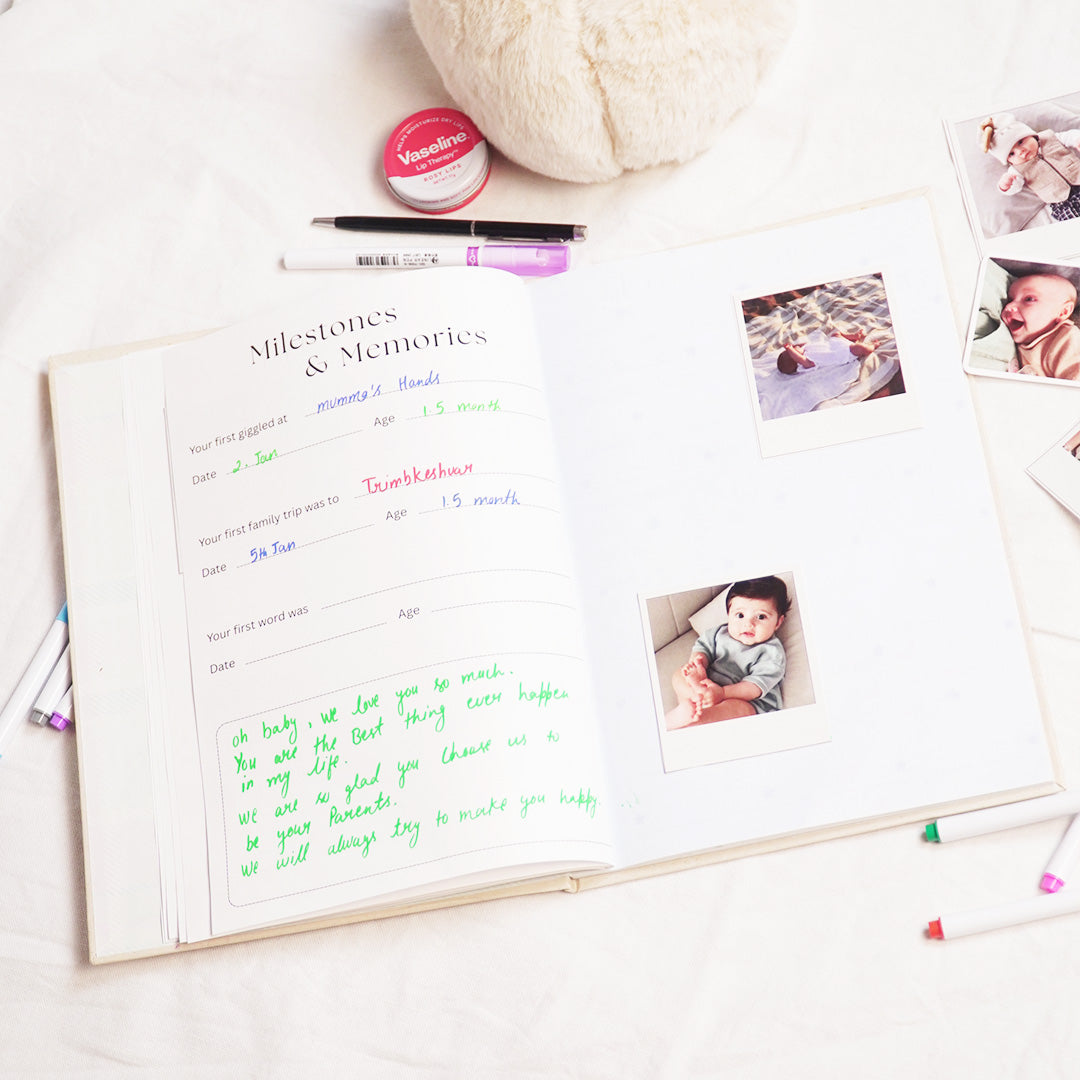 HELPS MOISTURIZE DRY LIPS
Vaseline
Lip Therapy™
ROSY LIPS
Milestones
& Memories
Your first giggled at mumma's Hands
Date 2. Jan Age 1.5 month
Your first family trip was to Trimbkeshwar
Date 5th Jan Age 1.5 month
Your first word was
Date Age
oh baby, we love you so much.
You are the Best thing ever happen
in my life.
we are so glad you choose us to
be your Parents.
We will always try to make you happy.